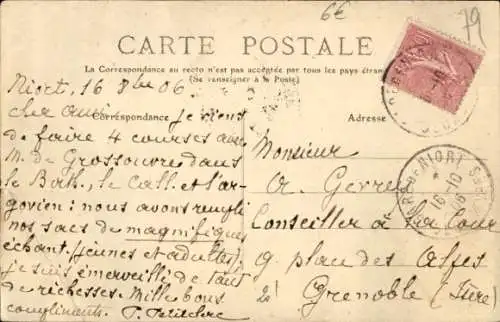 6€
79
CARTE POSTALE
La Correspondance au recto n'est pas acceptée par tous les pays étran
(Se renseigner à la Poste)
Niort, 16 8bre 06
cher ami
Correspondance
je viens
de faire 4 courses avec
M. de Grossouvre dans
le Bath., le Call. et l'ar-
govien : nous avons rempli
nos sacs de magnifiques
échant. (jeunes et adultes)
je suis émerveillé de tant
de richesses. Mille bons
compliments. P. Petitclerc
Adresse
Monsieur
A. Gevrey
Conseiller à la Cour
9. place des Alpes
à Grenoble (Isère)
NIORT
16-10